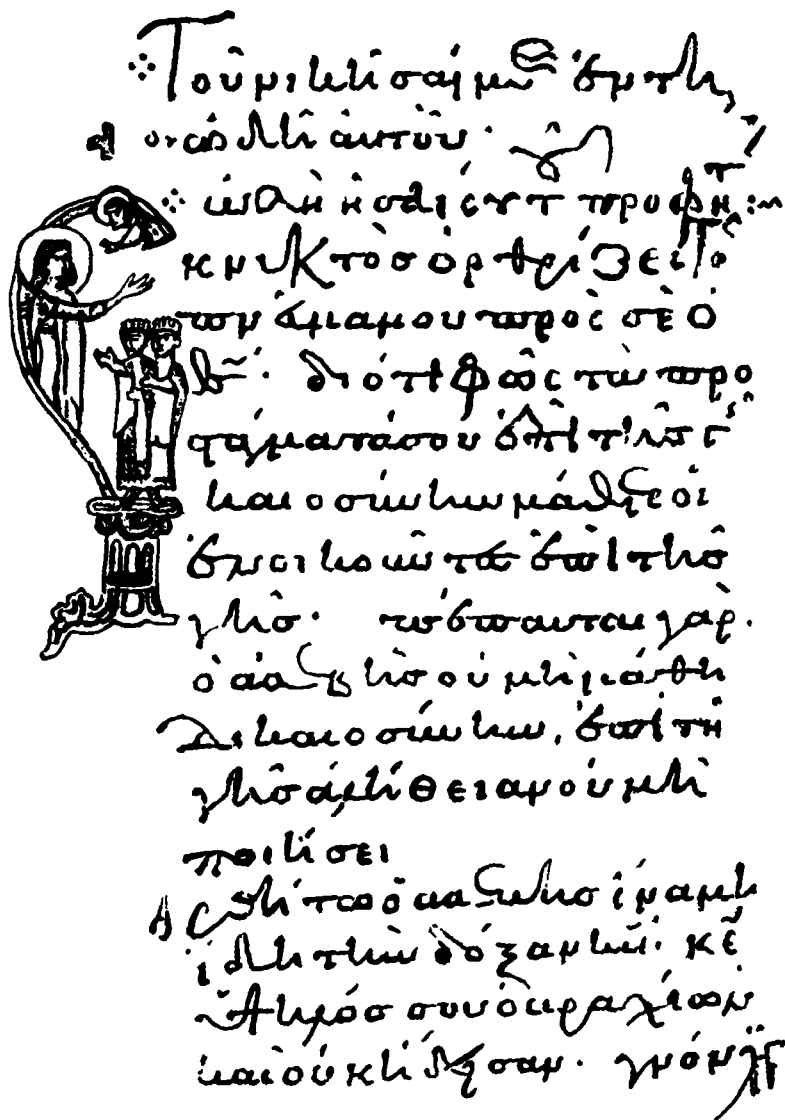 Τοῦ νικῆσαί με ἐν τῆ
ὠδῆ αὐτοῦ·
ὠδὴ ἡσαΐου τ προφητ :~
κ νυκτὸσ ὀρθρίζει τὸ
πν̅α μου πρὸς σὲ ὁ
θ̅ς· διότι φῶς τὰ προ
στάγματά σου ἐπὶ τῆς γῆς
δικαιοσύνην μάθετε οἱ
ἐνοικοῦντεσ ἐπὶ τῆσ
γῆσ· πέπαυται γὰρ
ὁ ἀσεβὴσ οὐ μὴ μάθη
δικαιοσύνην, ἐπὶ τῆσ
γῆσ ἀλήθειαν οὐ μὴ
ποιήσει
ἀρθήτω ὁ ἀσεβὴσ ἵνα μὴ
ἴδη τὴν δόξαν κ̅υ· κ̅ε
ὑψηλόσ σου ὁ βραχίων
καὶ οὐκ ἤδεισαν· γνόντες